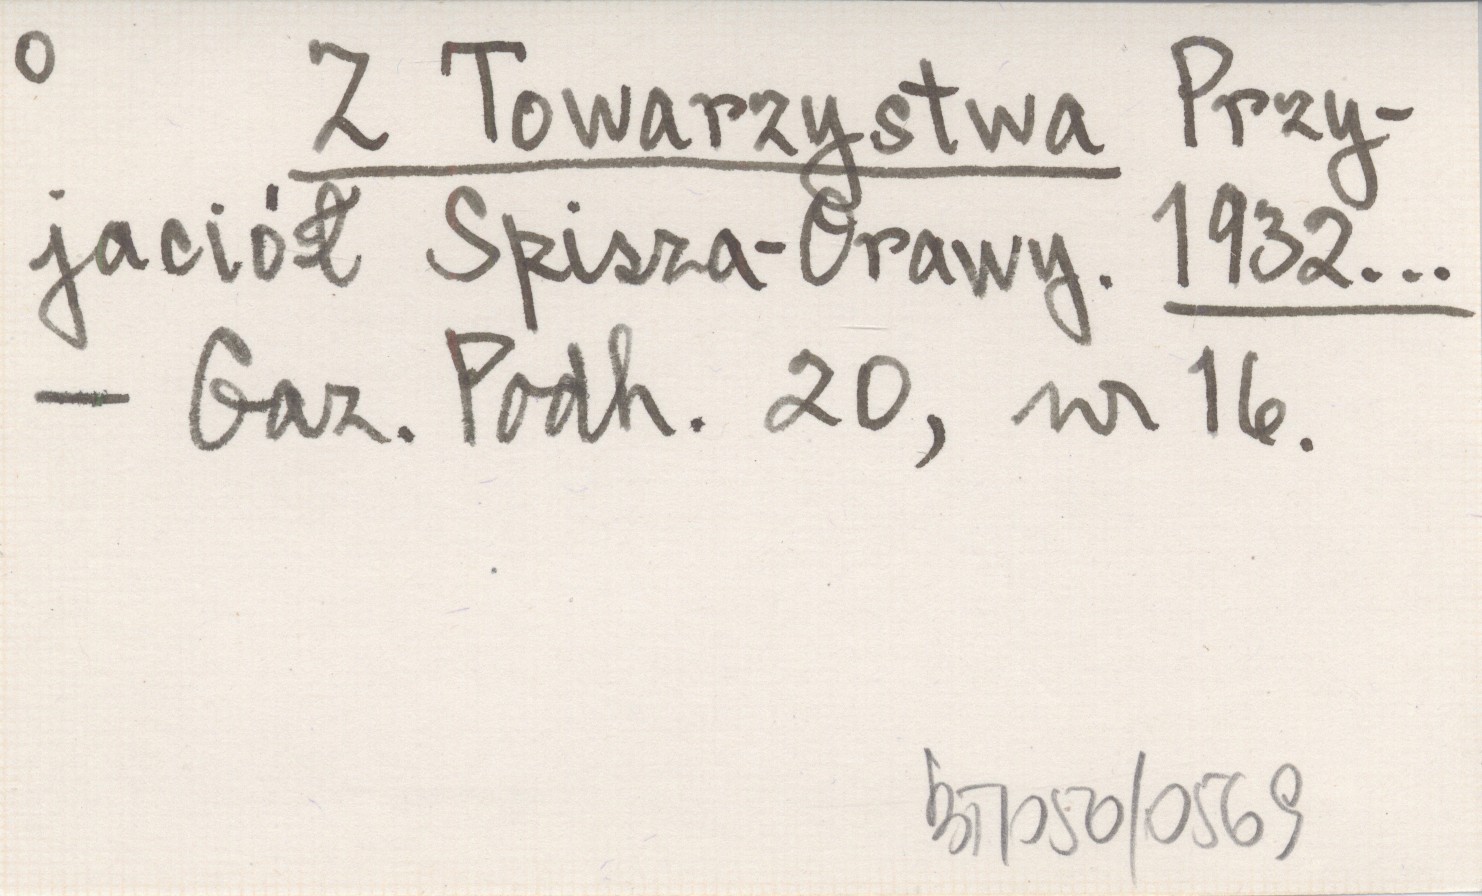 o Z Towarzystwa Przy-
jaciół Spisza-Orawy. 1932...
— Gaz. Podh. 20, nr 16.
BT/050/0569